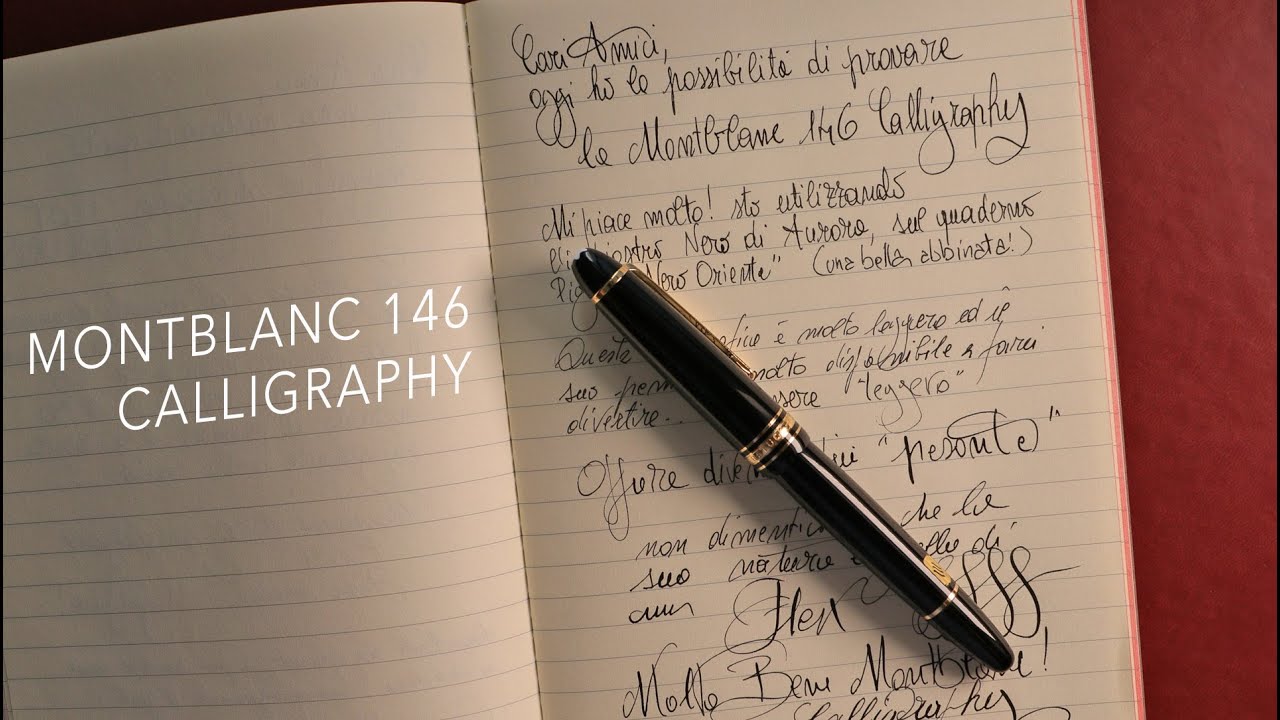 MONTBLANC 146
CALLIGRAPHY
Cari Amici,
oggi ho la possibilità di provare
la Montblanc 146 Calligraphy
Mi piace molto! sto utilizzando
Nero di Aurora, sul quaderno
"Nero Oriente" (una bella abbinata!)
è molto leggero ed è
suo molto disponibile a farci
divertire.. "leggero"
Oppure "pesante"
non che la
suo natura di
Flex
Molto Bene Montblanc!
Calligraphy